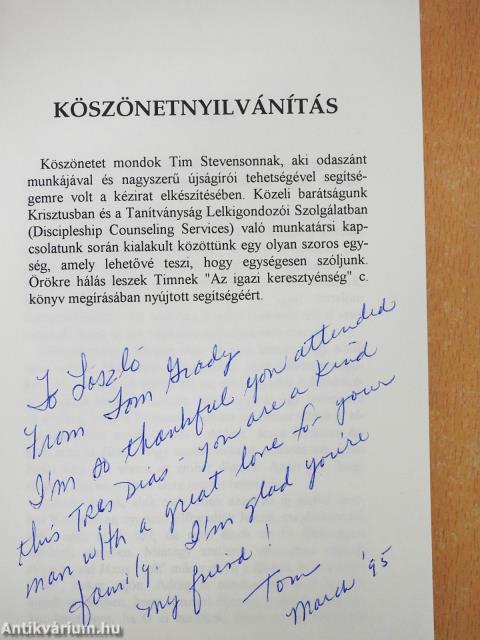 KÖSZÖNETNYILVÁNÍTÁS
Köszönetet mondok Tim Stevensonnak, aki odaszánt
munkájával és nagyszerű újságírói tehetségével segítsé-
gemre volt a kézirat elkészítésében. Közeli barátságunk
Krisztusban és a Tanítványság Lelkigondozói Szolgálatban
(Discipleship Counseling Services) való munkatársi kap-
csolatunk során kialakult közöttünk egy olyan szoros egy-
ség, amely lehetővé teszi, hogy egységesen szóljunk.
Örökre hálás leszek Timnek "Az igazi keresztyénség" c.
könyv megírásában nyújtott segítségéért.
To László
From Tom Grady
I'm so thankful you attended
this Tres Dias - You are a kind
man with a great love for your
family. I'm glad you're
my friend!
Tom
March '95
Antikvárium.hu